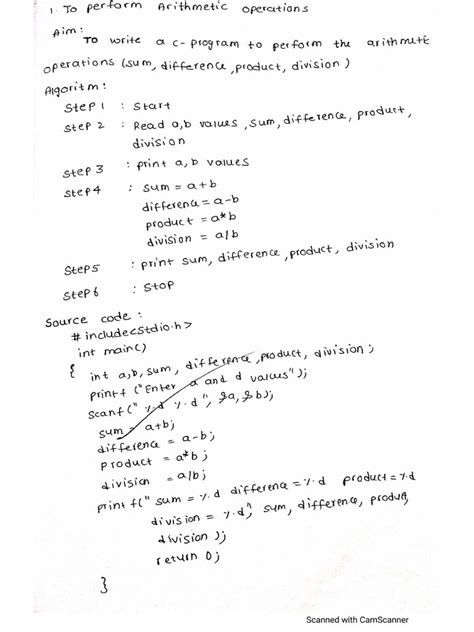 1. To perform Arithmetic operations
Aim:
To write a c-program to perform the arithmetic
operations (sum, difference, product, division)
Algoritm:
Step 1 : Start
Step 2 : Read a,b values, sum, difference, product,
division
Step 3 : print a,b values
Step 4 : sum = a+b
difference = a-b
product = a*b
division = a/b
Step 5 : print sum, difference, product, division
Step 6 : Stop
Source code:
#include<stdio.h>
int main()
{ int a,b, sum, difference, product, division;
printf ("Enter a and d values");
scanf(" %d %d", &a, &b);
sum = a+b;
difference = a-b;
product = a*b;
division = a/b;
printf(" sum = %d difference = %d product = %d
division = %d", sum, difference, product,
division );
return 0;
}
Scanned with CamScanner